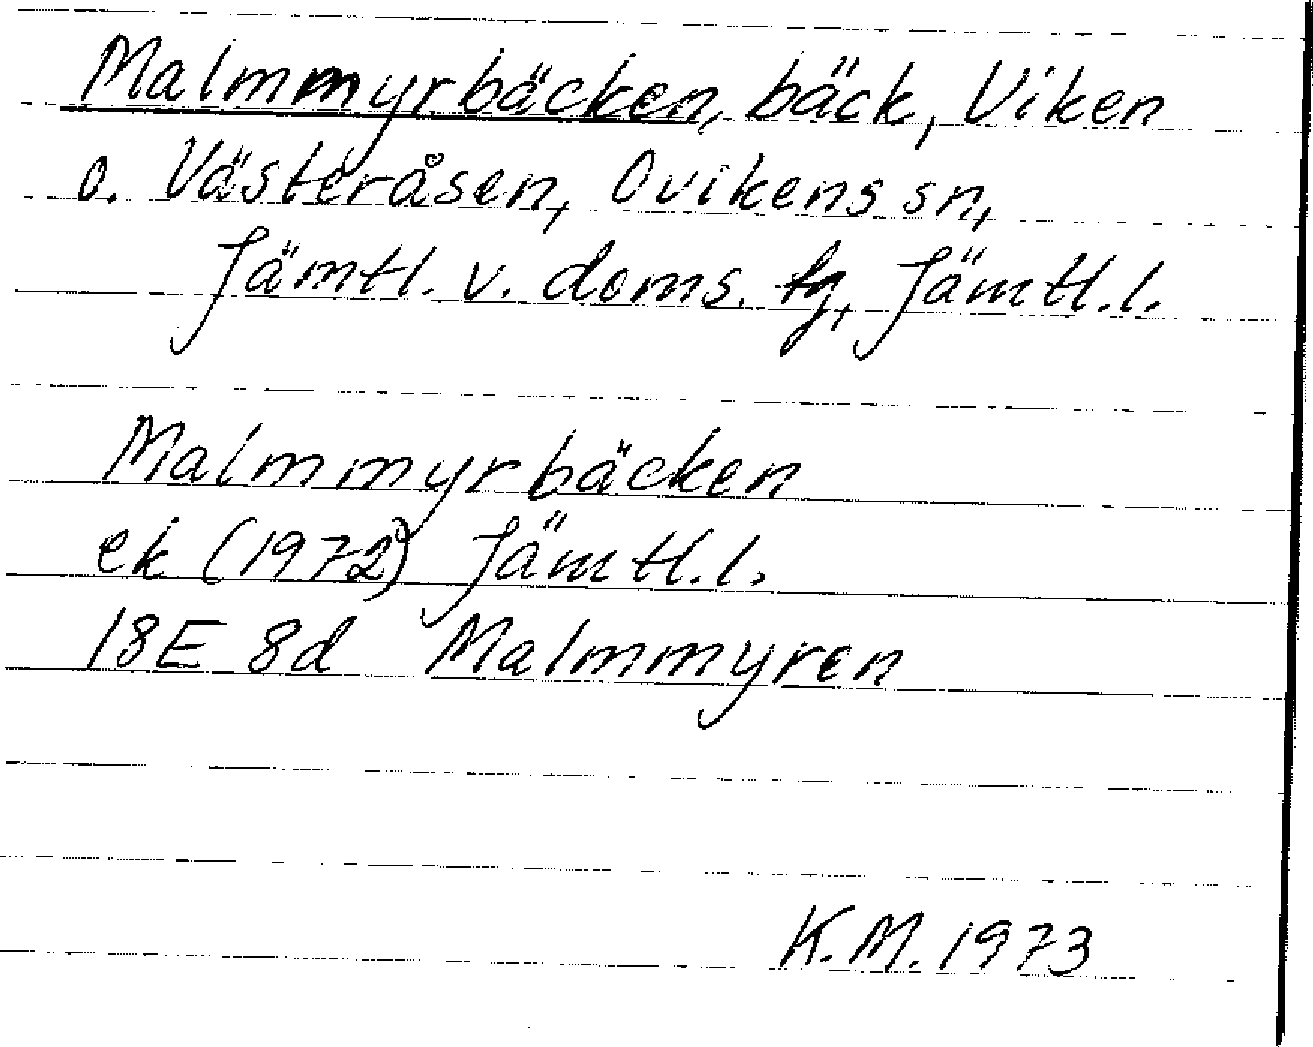 Malmmyrbäcken, bäck, Viken
o. Västeråsen, Ovikens sn,
Jämtl. v. doms. tg, Jämtl.l.
Malmmyrbäcken
ek (1972) Jämtl.l.
18E 8d Malmmyren
K.M. 1973